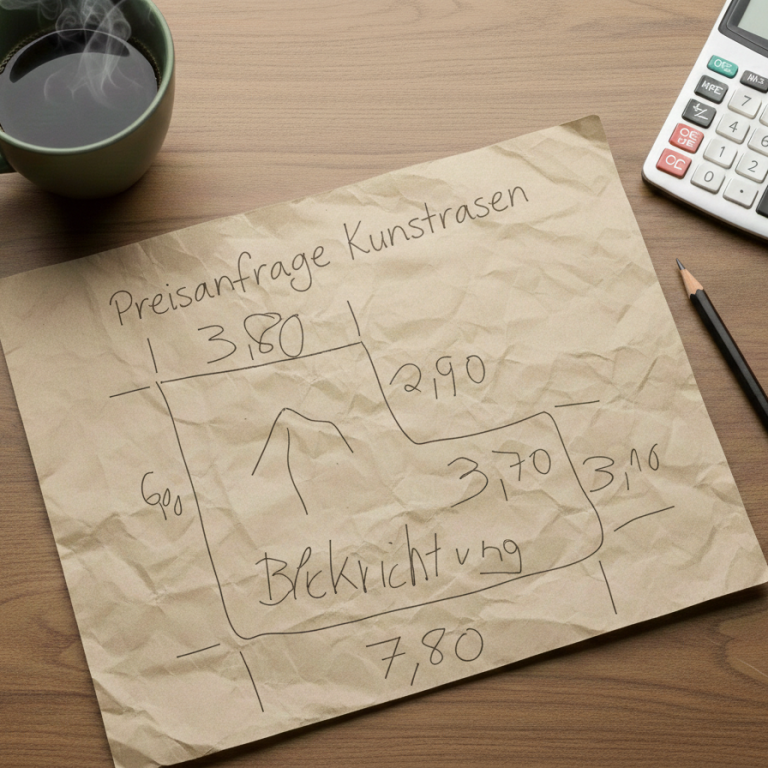 Preisanfrage Kunstrasen
3,80
2,90
6,00
3,70
3,10
Blickrichtung
7,80
7
4
1
2
0